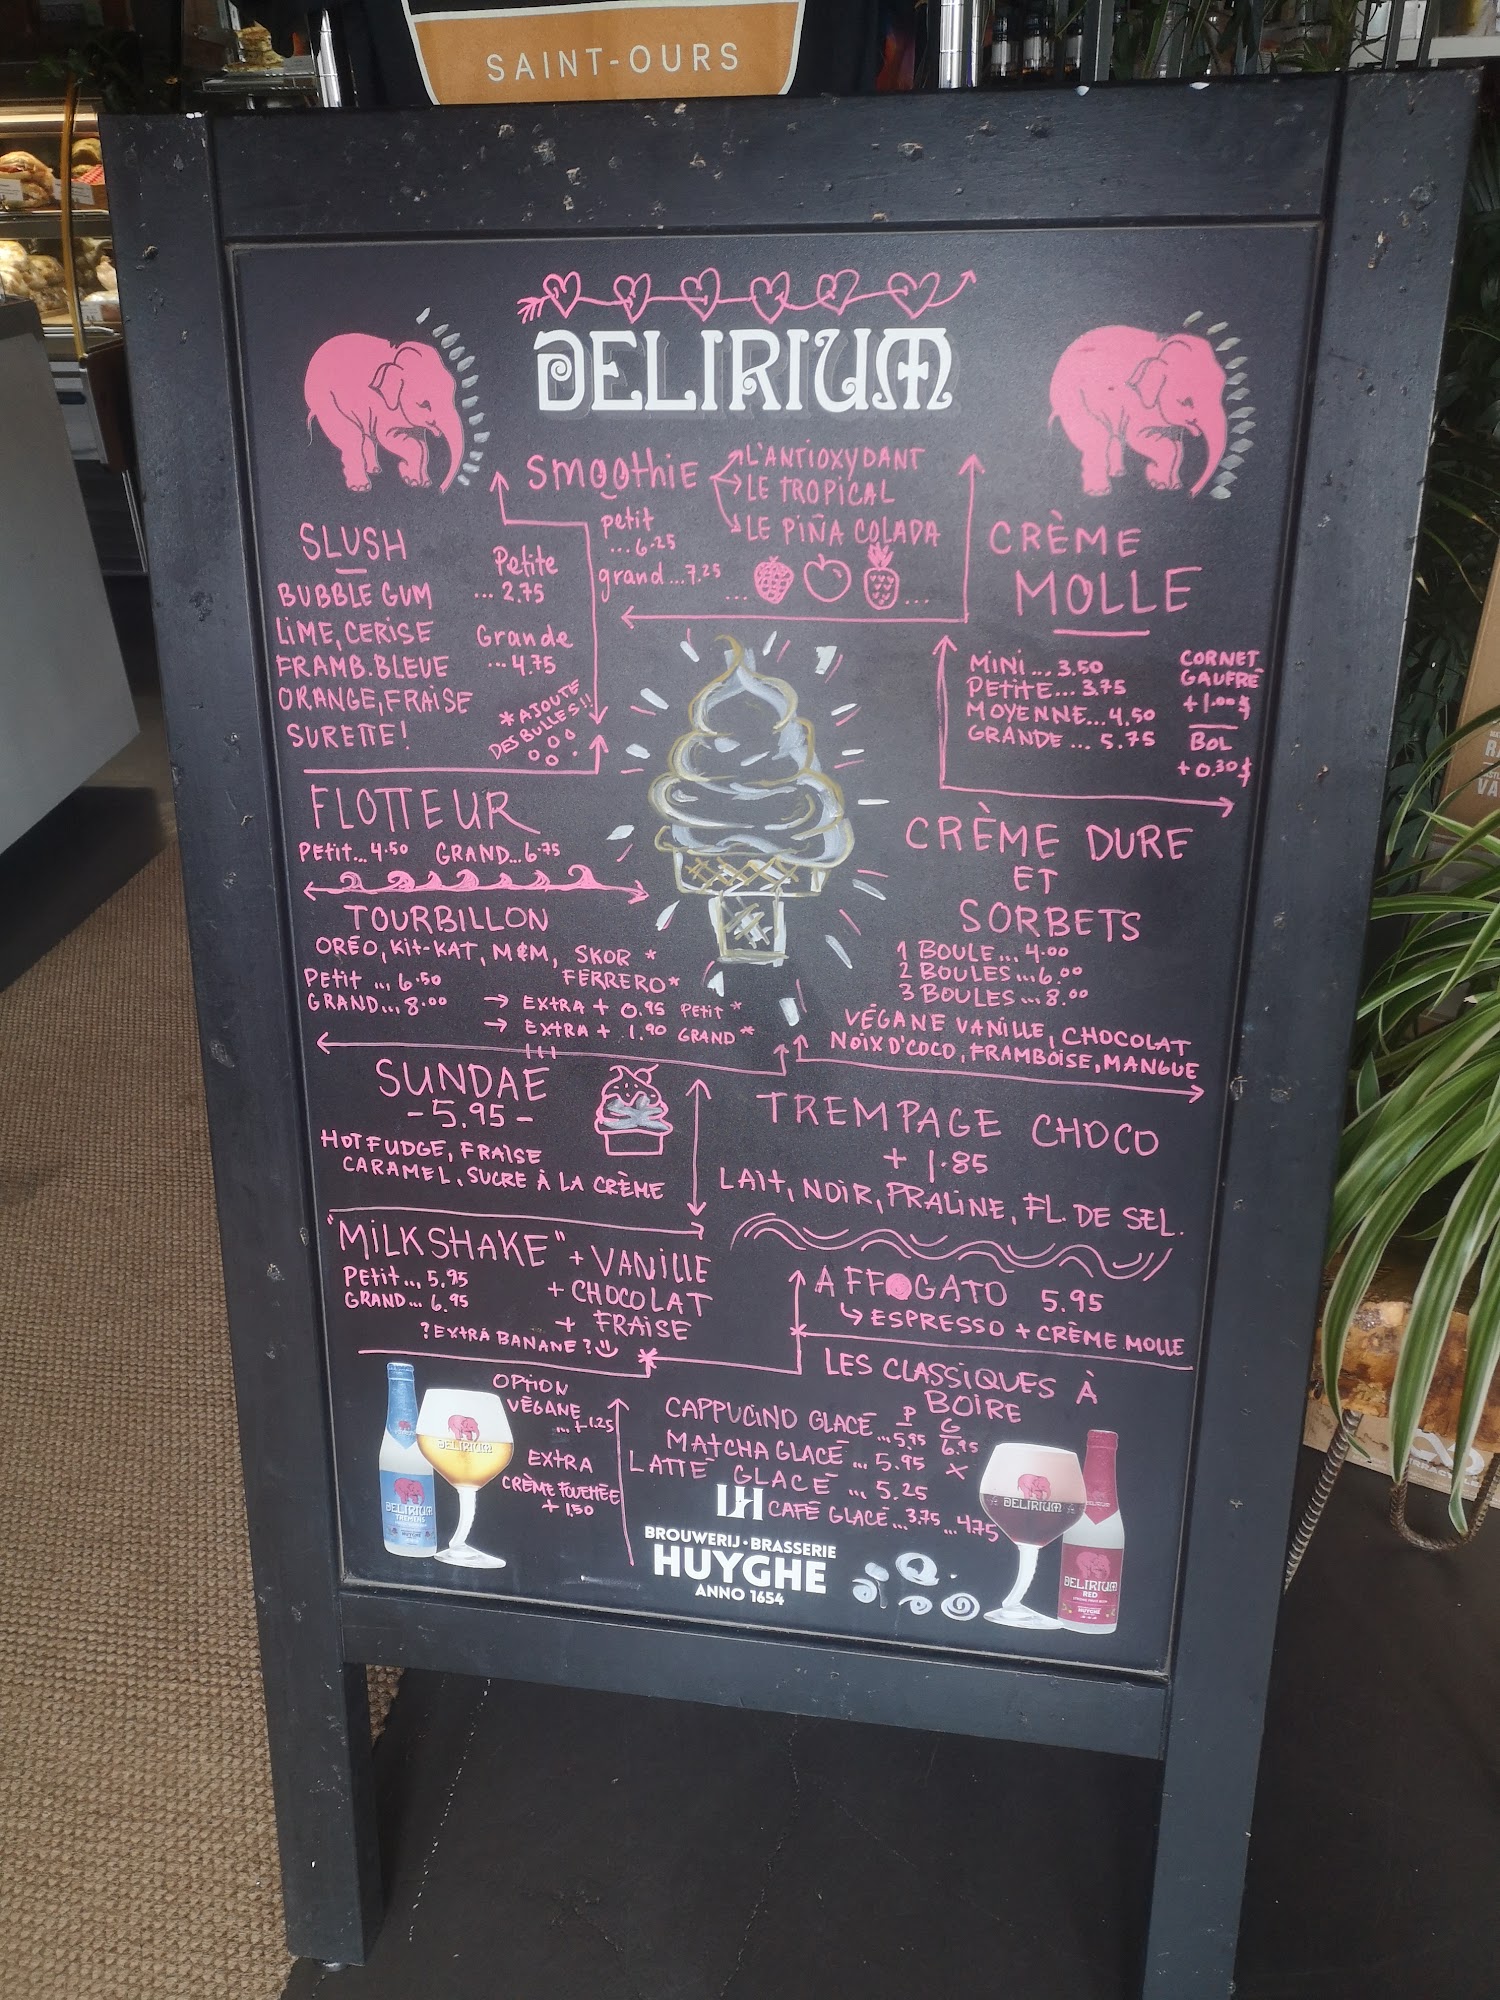 SAINT-OURS
DELIRIUM
SMOOTHIE
L'ANTIOXYDANT
LE TROPICAL
LE PIÑA COLADA
petit
... 6.25
grand...7.25
...
...
SLUSH
BUBBLE GUM
LIME, CERISE
FRAMB. BLEUE
ORANGE, FRAISE
SURETTE!
Petite
... 2.75
Grande
... 4.75
* AJOUTE
DES BULLES!!
CRÈME
MOLLE
MINI... 3.50
PETITE... 3.75
MOYENNE... 4.50
GRANDE ... 5.75
CORNET
GAUFRÉ
+1.00$
BOL
+0.30$
FLOTTEUR
PETIT... 4.50 GRAND...6.75
TOURBILLON
ORÉO, KIT-KAT, M&M, SKOR *
FERRERO*
PETIT ... 6.50
GRAND... 8.00
→ EXTRA + 0.95 PETIT *
→ EXTRA + 1.90 GRAND *
CRÈME DURE
ET
SORBETS
1 BOULE... 4.00
2 BOULES...6.00
3 BOULES ...8.00
VÉGANE VANILLE, CHOCOLAT
NOIX D'COCO, FRAMBOISE, MANGUE
SUNDAE
- 5.95 -
HOT FUDGE, FRAISE
CARAMEL, SUCRE À LA CRÈME
TREMPAGE CHOCO
+ 1.85
LAIT, NOIR, PRALINE, FL. DE SEL.
"MILKSHAKE" + VANILLE
+ CHOCOLAT
+ FRAISE
PETIT... 5.95
GRAND... 6.95
? EXTRA BANANE ?
AFFOGATO 5.95
↳ ESPRESSO + CRÈME MOLLE
LES CLASSIQUES À
BOIRE
P G
CAPPUCINO GLACÉ ...5.95 6.95
MATCHA GLACÉ ... 5.95 X
LATTÉ GLACÉ ... 5.25
CAFÉ GLACÉ...3.75 ...4.75
OPTION
VÉGANE
...+1.25
EXTRA
CRÈME FOUETTÉE
+ 1,50
DELIRIUM
DELIRIUM
TREMENS
HUYGHE
BROUWERIJ • BRASSERIE
HUYGHE
ANNO 1654
DELIRIUM
DELIRIUM
RED
HUYGHE